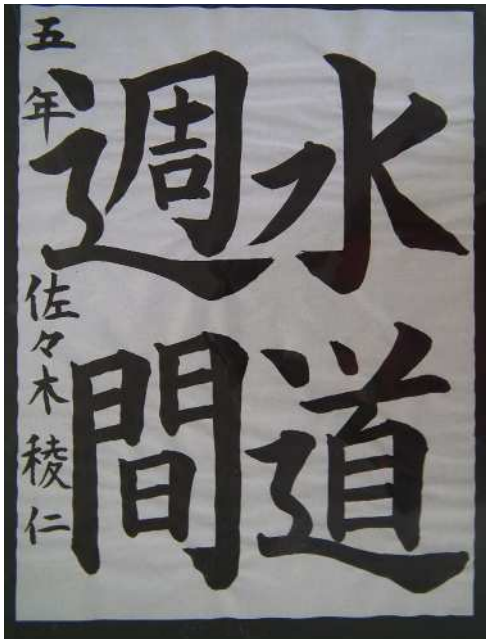 水道
週間
五年 佐々木稜仁